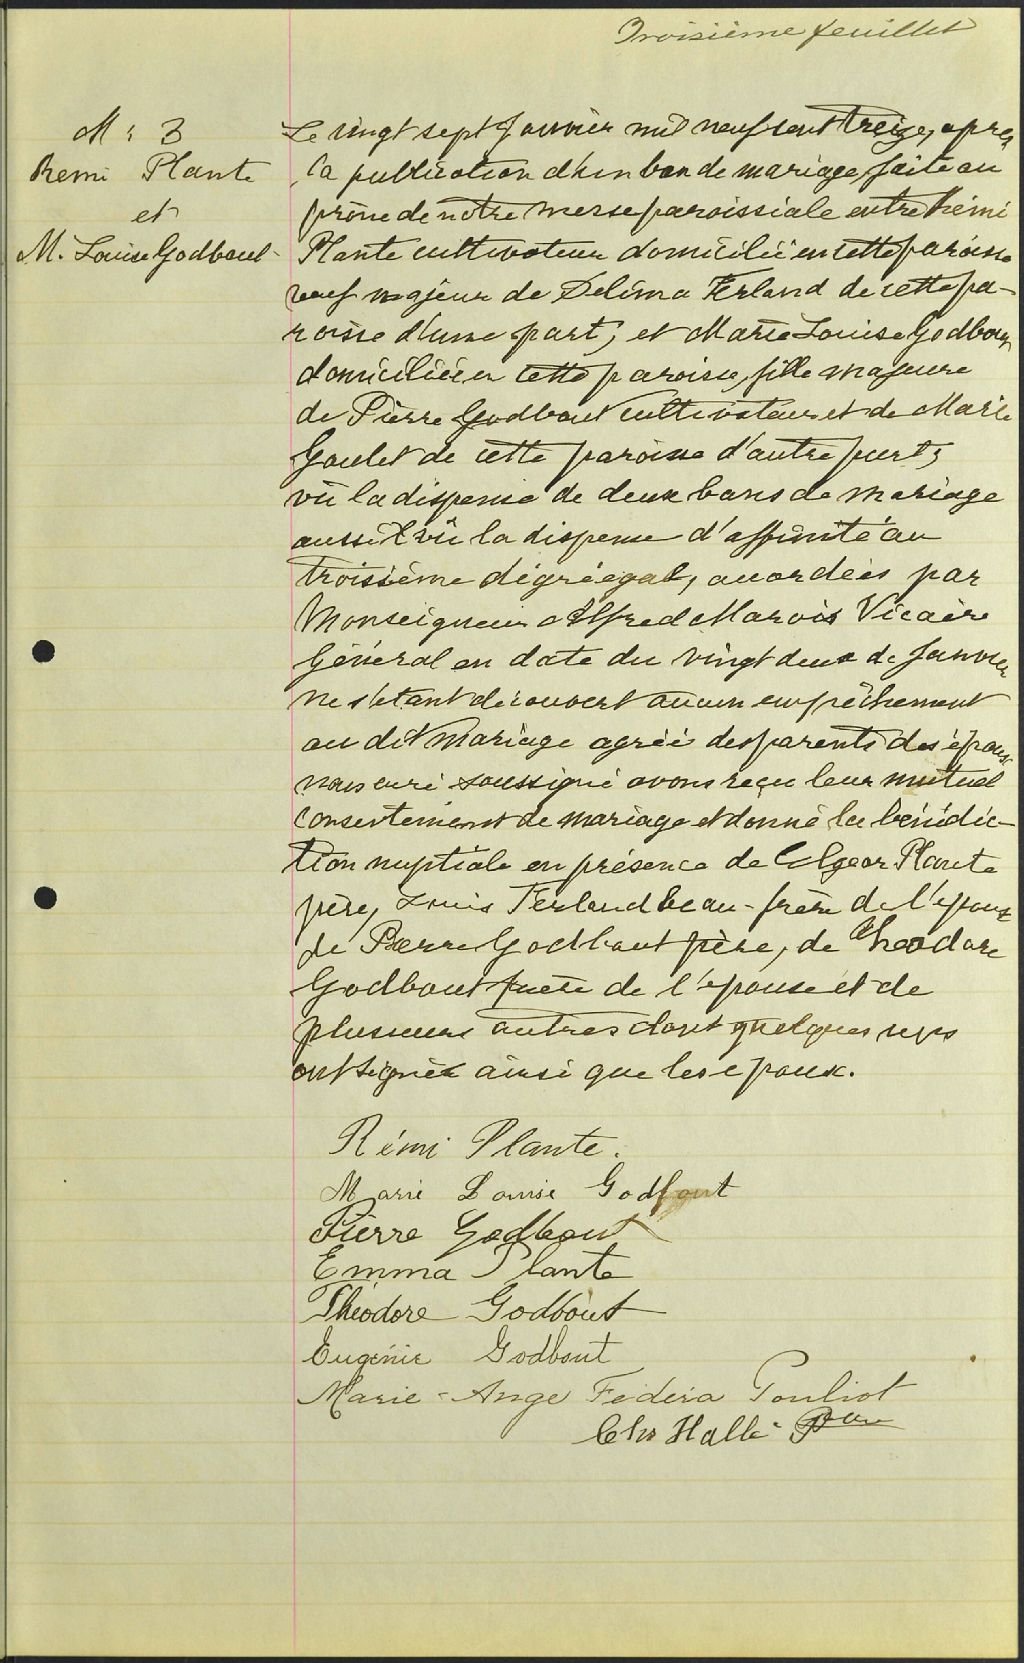 Troisième feuillet
M: 3
Remi Plante
et
M. Louise Godbout
Le vingt sept Janvier mil neuf cent treize, après
la publication d'un ban de mariage faite au
prône de notre messe paroissiale entre Rémi
Plante cultivateur domicilié en cette paroisse
veuf majeur de Delima Ferland de cette pa-
roisse d'une part; et Marie Louise Godbout
domiciliée en cette paroisse, fille majeure
de Pierre Godbout cultivateur et de Marie
Goulet de cette paroisse d'autre part;
vû la dispense de deux bans de mariage
aussi vû la dispense d'affinité au
troisième dégré égal, accordées par
Monseigneur Alfred Marois Vicaire
Général en date du vingt deux de Janvier
ne s'étant découvert aucun empêchement
au dit mariage agréé des parents des époux
nous curé soussigné avons reçu leur mutuel
consentement de mariage et donné la bénédic-
tion nuptiale en présence de Elgear Plante
père, Louis Ferland beau-frère de l'époux
de Pierre Godbout père, de Theodore
Godbout frère de l'épouse et de
plusieurs autres dont quelques uns
ont signés ainsi que les epoux.
Rémi Plante.
Marie Louise Godbout
Pierre Godbout
Emma Plante
Théodore Godbout
Eugénie Godbout
Marie-Ange Fédéra Pouliot
Chs Hallé Ptre